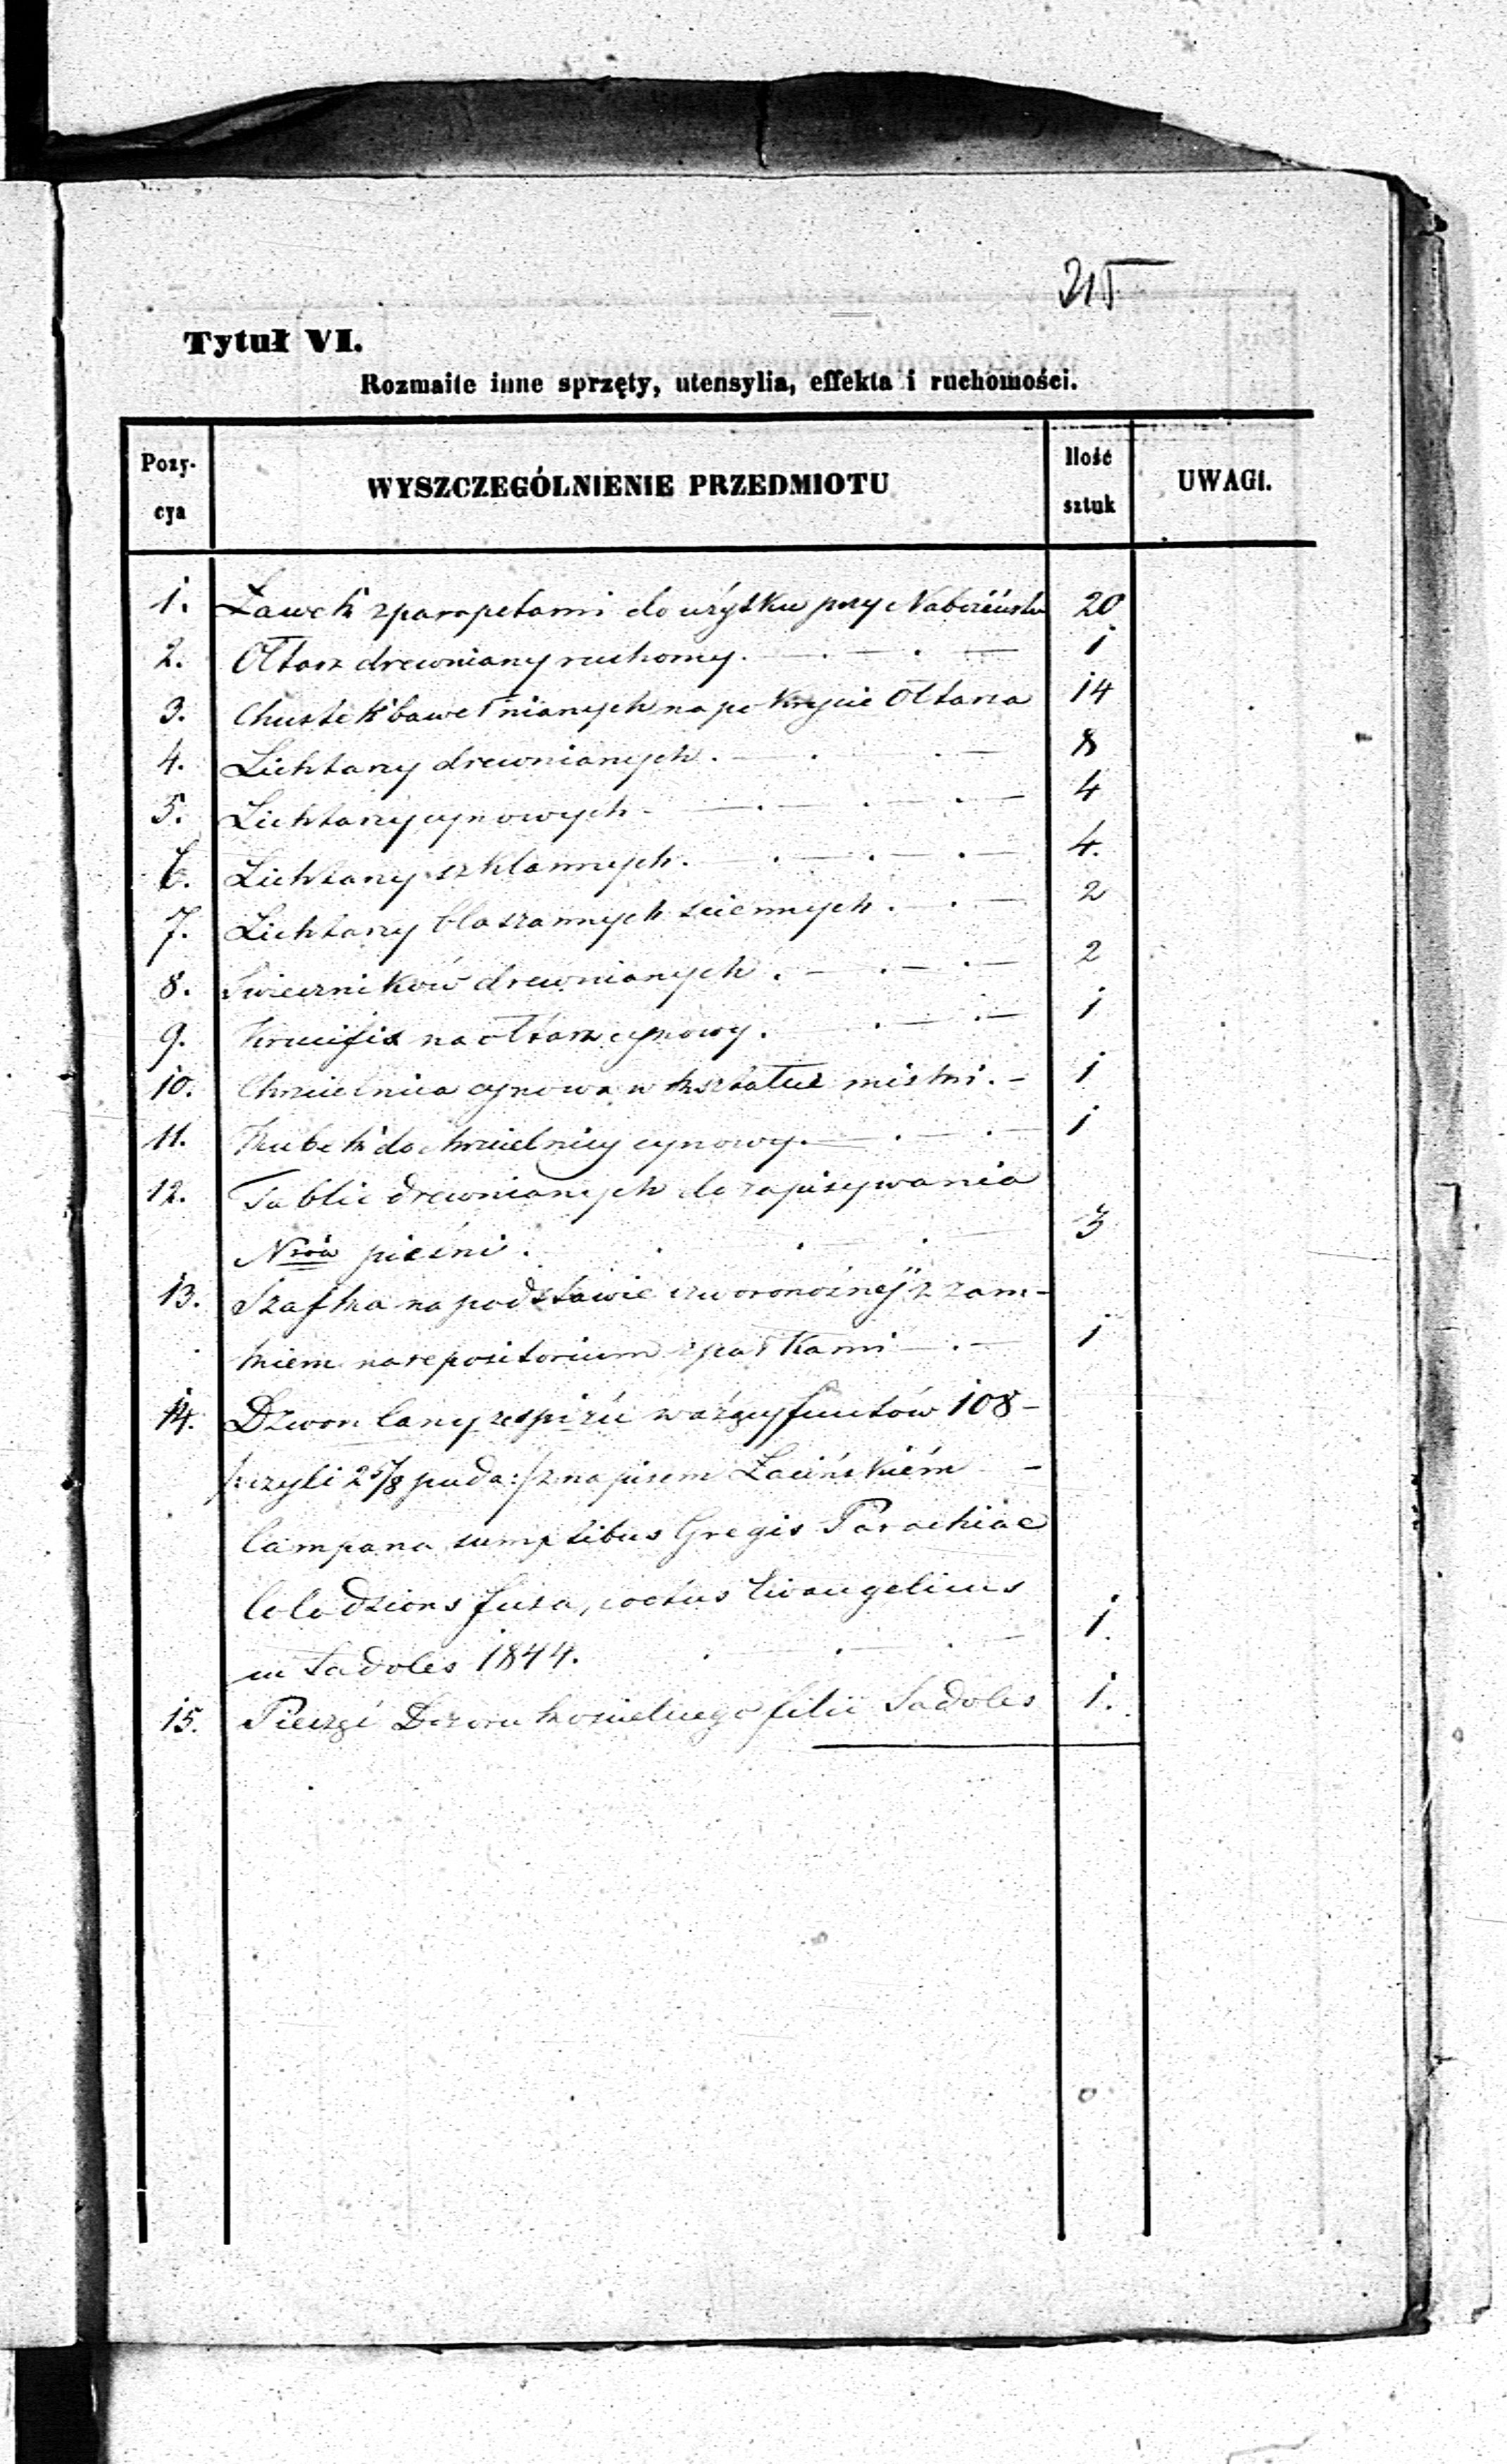 215
Tytuł VI.
Rozmaite inne sprzęty, utensylia, effekta i ruchomości.
Pozy-
cya
WYSZCZEGÓLNIENIE PRZEDMIOTU
Ilość
sztuk
UWAGI.
1. Ławek z parapetami do użytku przy Nabożeństw 20
2. Ołtarz drewniany ruchomy. 1
3. Chustek bawełnianych na pokrycie Ołtarza 14
4. Lichtarzy drewnianych. 8
5. Lichtarzy cynowych 4
6. Lichtarzy szklannych. 4.
7. Lichtarzy blaszannych sciennych. 2
8. Swieczników drewnianych. 2
9. Krucifix na ołtarz cynowy. 1
10. Chrzcielnica cynowa w kształcie miski. 1
11. Kubek do chrzcielnicy cynowy. 1
12. Tablic drewnianych do zapisywania
Nrów pieśni. 3
13. Szafka na podstawie czworonożnej z zam-
kiem na repositorium z półkami 1
14. Dzwon lany ze spiżu ważący funtów 108
/:czyli 2 5/8 puda:/ z napisem Łacińskiém
Campana sumptibus Gregis Parochiae
fusa, coetus Evangelicus
in Sadoles 1844. 1.
15. Pieczęć Dozoru kościelnego filii Sadoles 1.